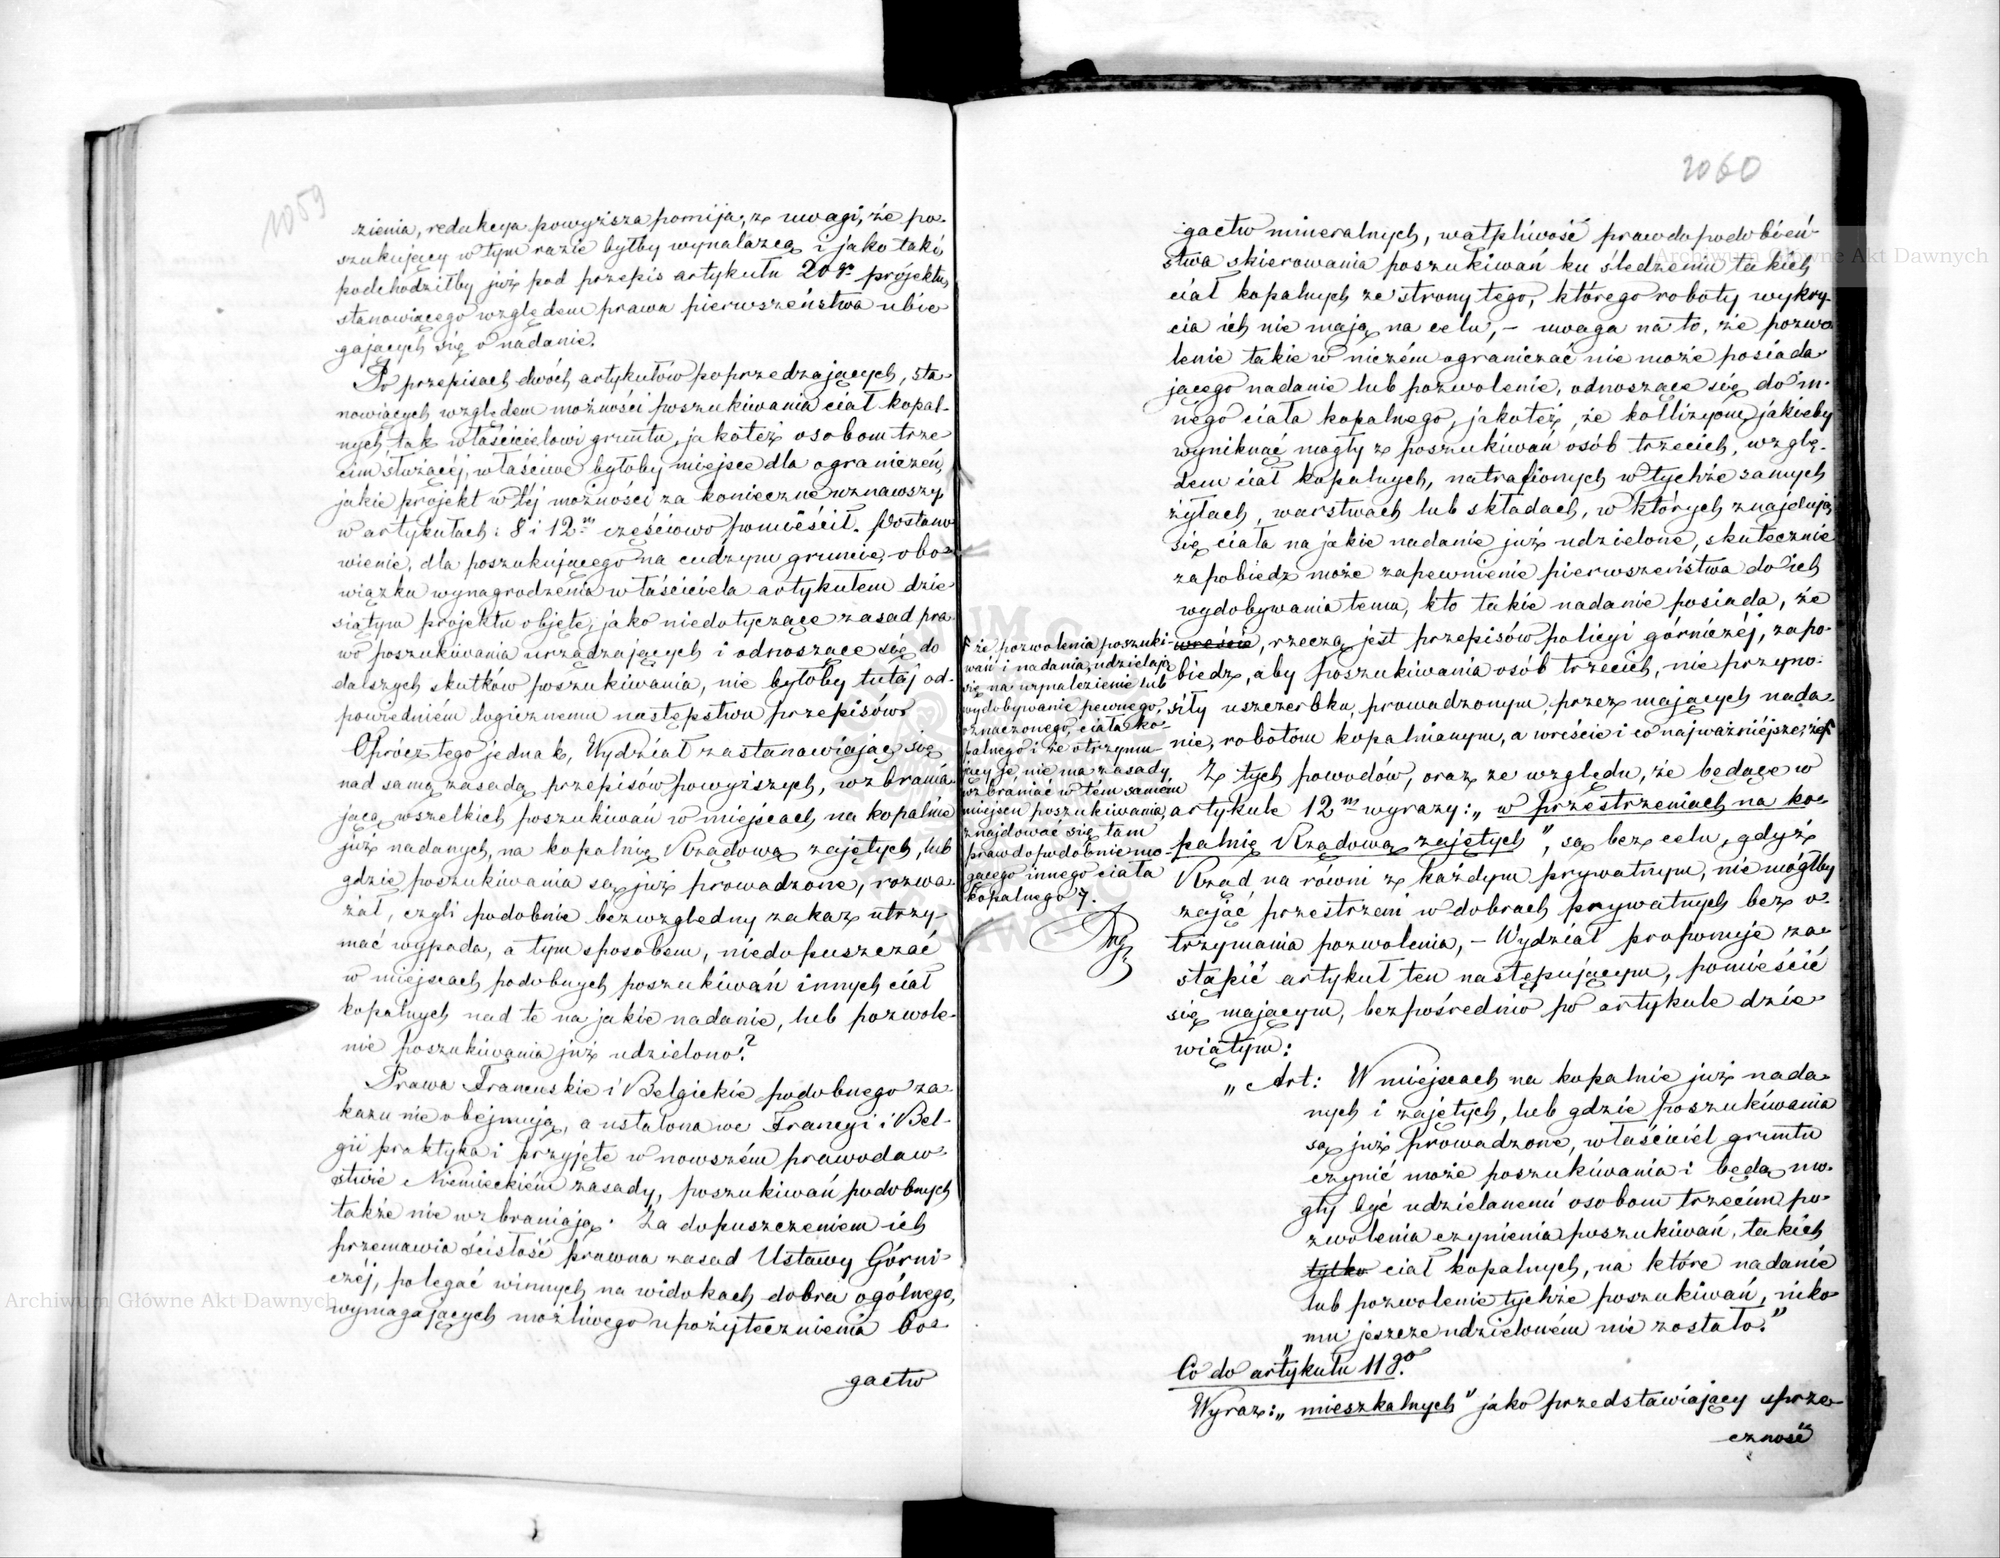 1059
zienia, redukcya powyższa pomija, z uwagi, że po-
szukujący w tym razie byłby wynalazcą i jako taki,
podchodziłby już pod przepis artykułu 20go projektu,
stanowiącego względem prawa pierwszeństwa ubie
gających się o nadanie.
Po przepisach dwóch artykułów poprzedzających, sta-
nowiących względem możności poszukiwania ciał kopal-
nych tak właścicielowi gruntu, jakoteż osobom trze
cim służącéj, właściwe byłoby miejsce dla ograniczeń,
jakie projekt w téj możności za konieczne uznawszy
w artykułach: 8 i 12m częściowo pomieścił. Postano
wienie, dla poszukującego na cudzym gruncie, obo-
wiązku wynagrodzenia właściciela artykułem dzie
siątym projektu objęte, jako niedotyczące zasad pra
wo poszukiwania urządzających i odnoszące się do
dalszych skutków poszukiwania, nie byłoby tutaj od-
powiedniém logicznemu następstwu przepisów.
Oprócz tego jednak, Wydział zastanawiając się
nad samą zasadą przepisów powyższych, wzbrania
jącą wszelkich poszukiwań w miejscach na kopalnie
już nadanych, na kopalnię Rządową zajętych, lub
gdzie poszukiwania są już prowadzone, rozwa-
żał, czyli podobnie bezwzględny zakaz utrzy-
mać wypada, a tym sposobem, niedopuszczać
w miejscach podobnych poszukiwań innych ciał
kopalnych nad te na jakie nadanie, lub pozwole-
nie poszukiwania już udzielono?
Prawa Francuskie i Belgickie podobnego za-
kazu nie obejmują, a ustalona we Francyi i Bel-
gii praktyka i przyjęte w nowszém prawodaw-
stwie Niemieckiém zasady, poszukiwań podobnych
także nie wzbraniają. Za dopuszczeniem ich
przemawia ścisłość prawna zasad Ustawy Górni-
czéj, polegać winnych na widokach dobra ogólnego,
wymagających możliwego upożytecznienia bo-
gactw
1060
gactw mineralnych, wątpliwość prawdopodobień-
stwa skierowania poszukiwań ku śledzeniu takich
ciał kopalnych ze strony tego, którego roboty wykry-
cia ich nie mają na celu, – uwaga na to, że pozwo
lenie takie w niczém ograniczać nie może posiada-
jącego nadanie lub pozwolenie, odnoszące się do in-
nego ciała kopalnego, jakoteż, że kollizyom, jakieby
wyniknąć mogły z poszukiwań osób trzecich, wzglę-
dem ciał kopalnych, natrafionych w tychże samych
żyłach, warstwach lub składach, w których znajdują
się ciała na jakie nadanie już udzielone, skutecznie
zapobiedz może zapewnienie pierwszeństwa do ich
wydobywania temu, kto takie nadanie posiada, że
wreście, rzeczą jest przepisów policyi górniczéj, zapo-
biedz, aby poszukiwania osób trzecich, nie przyno-
siły uszczerbku, prowadzonym, przez mających nada-
nie, robotom kopalnianym, a wreście i co najważniejsze, że
Z tych powodów, oraz ze względu, że będące w
artykule 12m wyrazy: „w przestrzeniach na ko-
palnię Rządową zajętych”, są bez celu, gdyż
Rząd na równi z każdym prywatnym, nie mógłby
zająć przestrzeni w dobrach prywatnych bez o-
trzymania pozwolenia, – Wydział proponuje za-
stąpić artykuł ten następującym, pomieścić
się mającym, bezpośrednio po artykule dzie
wiątym:
„Art: W miejscach na kopalnie już nada-
nych i zajętych, lub gdzie poszukiwania
są już prowadzone, właściciel gruntu
czynić może poszukiwania i będą mo-
gły być udzielanemi osobom trzecim po-
zwolenia czynienia poszukiwań, takich
tylko ciał kopalnych, na które nadanie
lub pozwolenie tychże poszukiwań, niko-
mu jeszcze udzieloném nie zostało.”
Co do artykułu 11go.
Wyraz: „mieszkalnych” jako przedstawiający sprze-
czność
że pozwolenia poszuki-
wań i nadania, udzielają
się na wynalezienie lub
wydobywanie pewnego,
oznaczonego, ciała ko-
palnego i że otrzymu-
jący je, nie ma zasady
wzbraniać w tém samém
miejscu poszukiwania,
znajdować się tam
prawdopodobnie mo-
gącego innego ciała
kopalnego.
Archiwum Główne Akt Dawnych
Archiwum Główne Akt Dawnych